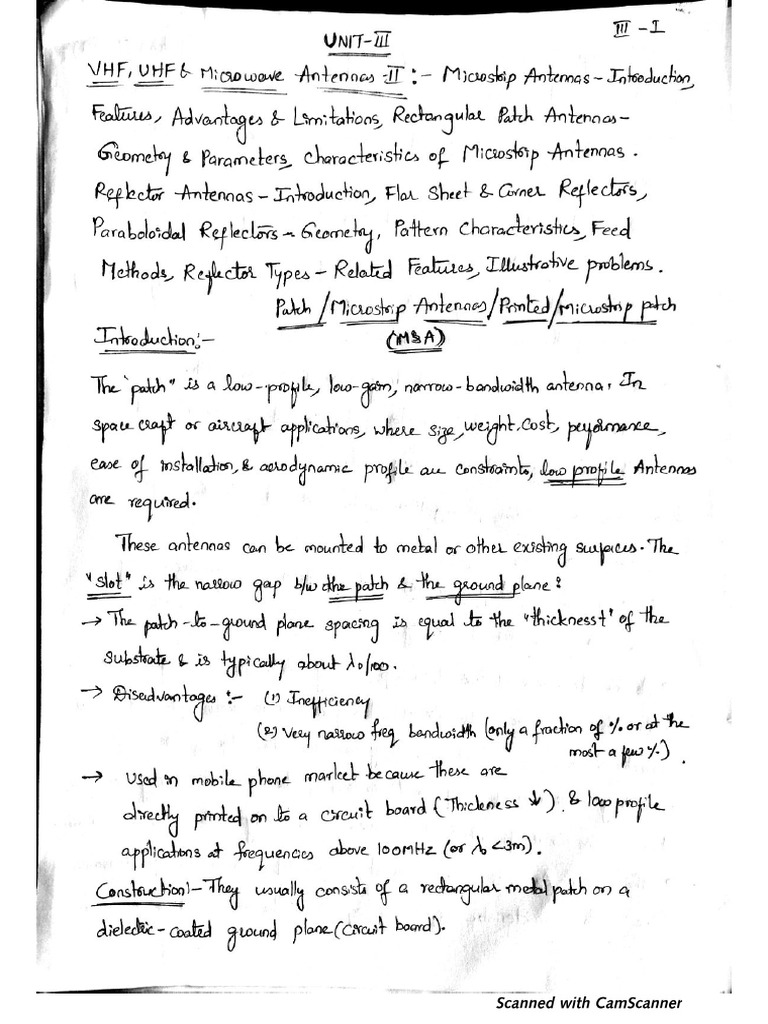 III - I
UNIT-III
VHF, UHF & Microwave Antennas -II :- Microstrip Antennas - Introduction,
Features, Advantages & Limitations, Rectangular Patch Antennas -
Geometry & Parameters, Characteristics of Microstrip Antennas.
Reflector Antennas - Introduction, Flar Sheet & Corner Reflectors,
Paraboloidal Reflectors - Geometry, Pattern Characteristics, Feed
Methods, Reflector Types - Related Features, Illustrative problems.
Patch / Microstrip Antennas / Printed / microstrip patch
Introduction:- (MSA)
The "patch" is a low-profile, low-gain, narrow-bandwidth antenna. In
space craft or aircraft applications, where size, weight, cost, performance,
ease of installation, & aerodynamic profile are constraints, low profile Antennas
are required.
These antennas can be mounted to metal or other existing surfaces. The
"slot" is the narrow gap b/w the patch & the ground plane:
→ The patch-to-ground plane spacing is equal to the "thickness t" of the
substrate & is typically about λ0/100.
→ Disadvantages :- (1) Inefficiency
(2) Very narrow freq bandwidth (only a fraction of % or at the
most a few %).
→ Used in mobile phone market because these are
directly printed on to a circuit board (Thickness ↓) & low profile
applications at frequencies above 100MHz (or λ0 <3m).
Construction:- They usually consists of a rectangular metal patch on a
dielectric-coated ground plane (circuit board).
Scanned with CamScanner